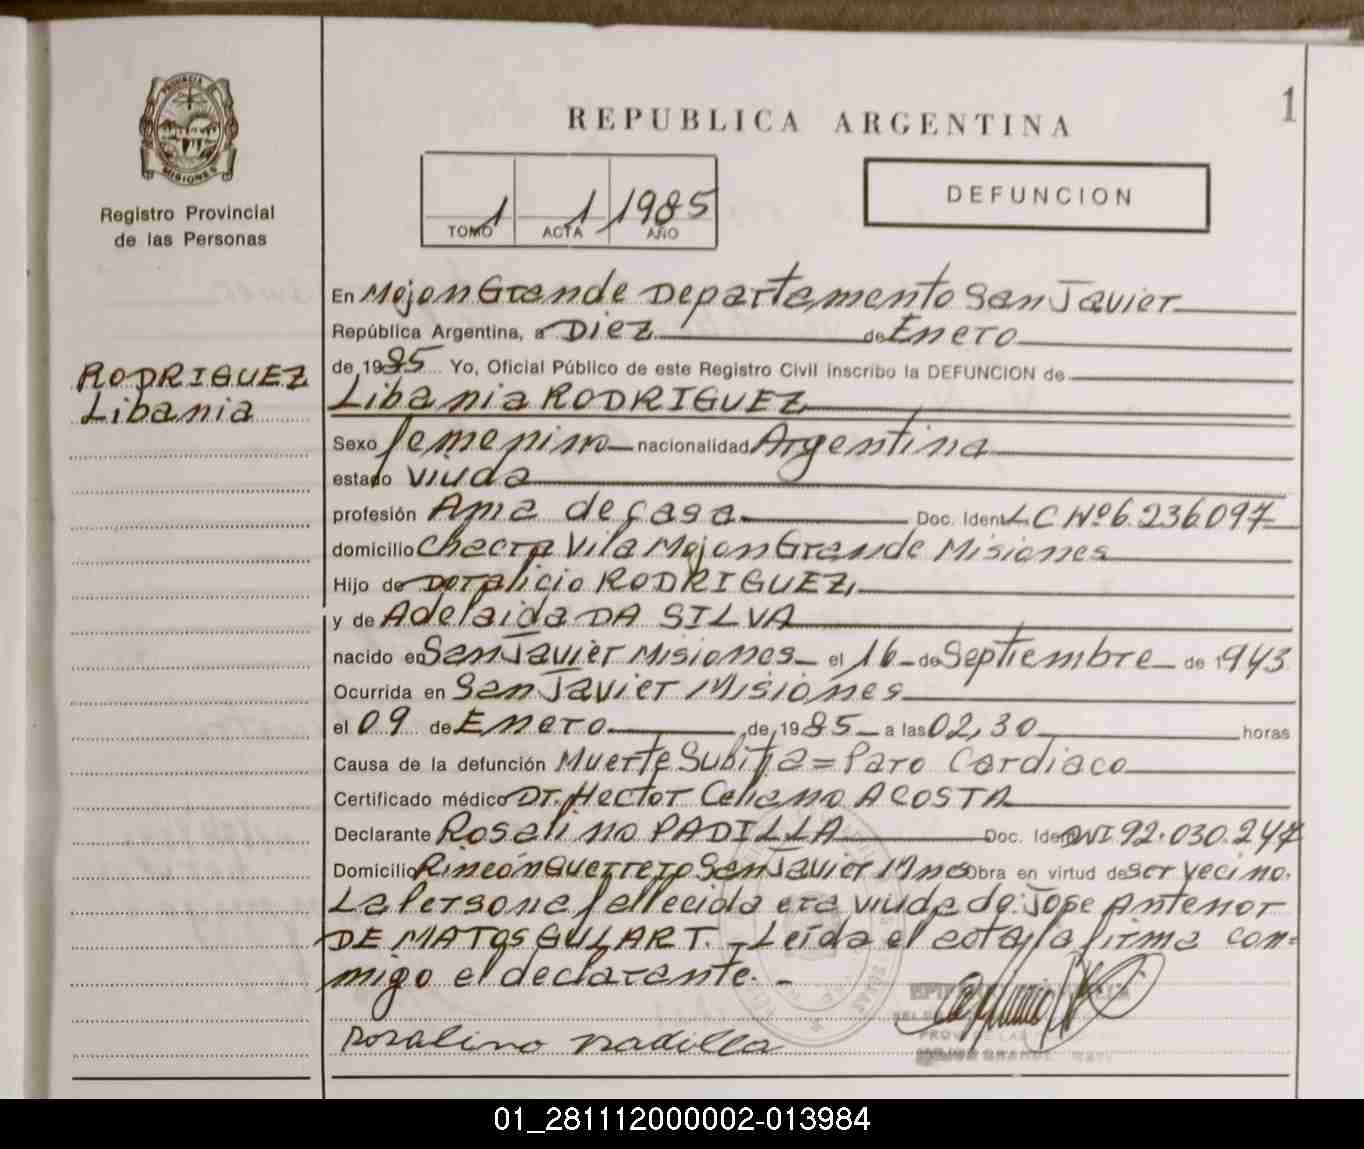 PROVINCIA DE
MISIONES
Registro Provincial
de las Personas
RODRIGUEZ
Libania
1
REPUBLICA ARGENTINA
1 1 1985
TOMO ACTA AÑO
DEFUNCION
En Mojon Grande Departamento San Javier
República Argentina, a Diez de Enero
de 1985 Yo, Oficial Público de este Registro Civil inscribo la DEFUNCION de
Libania RODRIGUEZ
Sexo femenino nacionalidad Argentina
estado viuda
profesión Ama de casa Doc. Ident. LC Nº 6.236.097
domicilio Chacra Vila Mojon Grande Misiones
Hijo de Doralicio RODRIGUEZ,
y de Adelaida DA SILVA
nacido en San Javier Misiones el 16 de Septiembre de 1943
Ocurrida en San Javier Misiones
el 09 de Enero de 1985 a las 02,30 horas
Causa de la defunción Muerte Subita = Paro Cardiaco
Certificado médico Dr. Hector Celiano ACOSTA
Declarante Rosalino PADILLA Doc. Ident. DNI 92.030.247
Domicilio Rincón Guerrero San Javier Mnes Obra en virtud de ser vecino.
La Persona fallecida era viuda de: Jose Antenor
DE MATOS GULART. - Leída el acta, la firma con-
migo el declarante. -
Rosalino Padilla
MOJON GRANDE
01_281112000002-013984